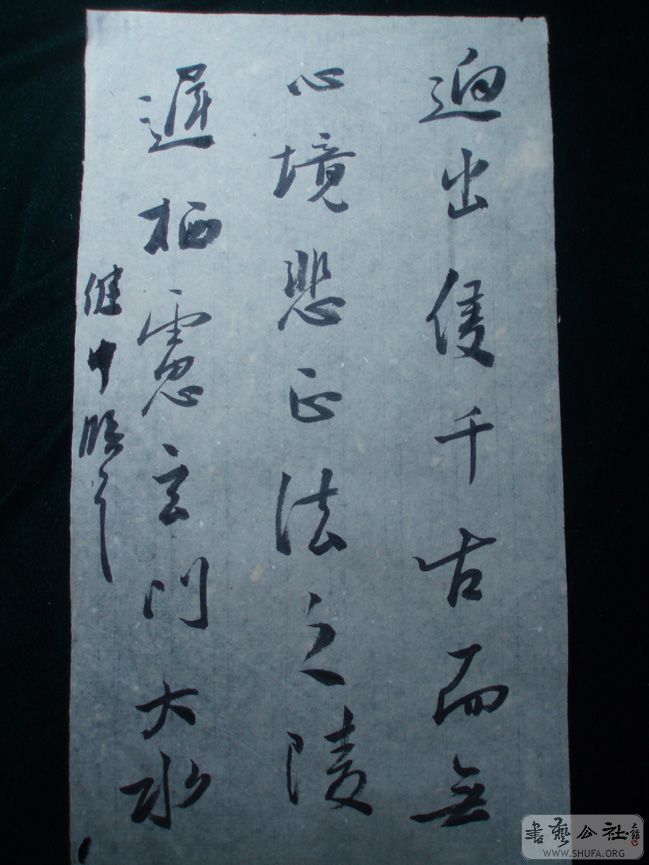 迥出隻千古而無
心境悲正法之陵
遲栖慮玄門大水
健中臨
書藝公社
WWW.SHUFA.ORG